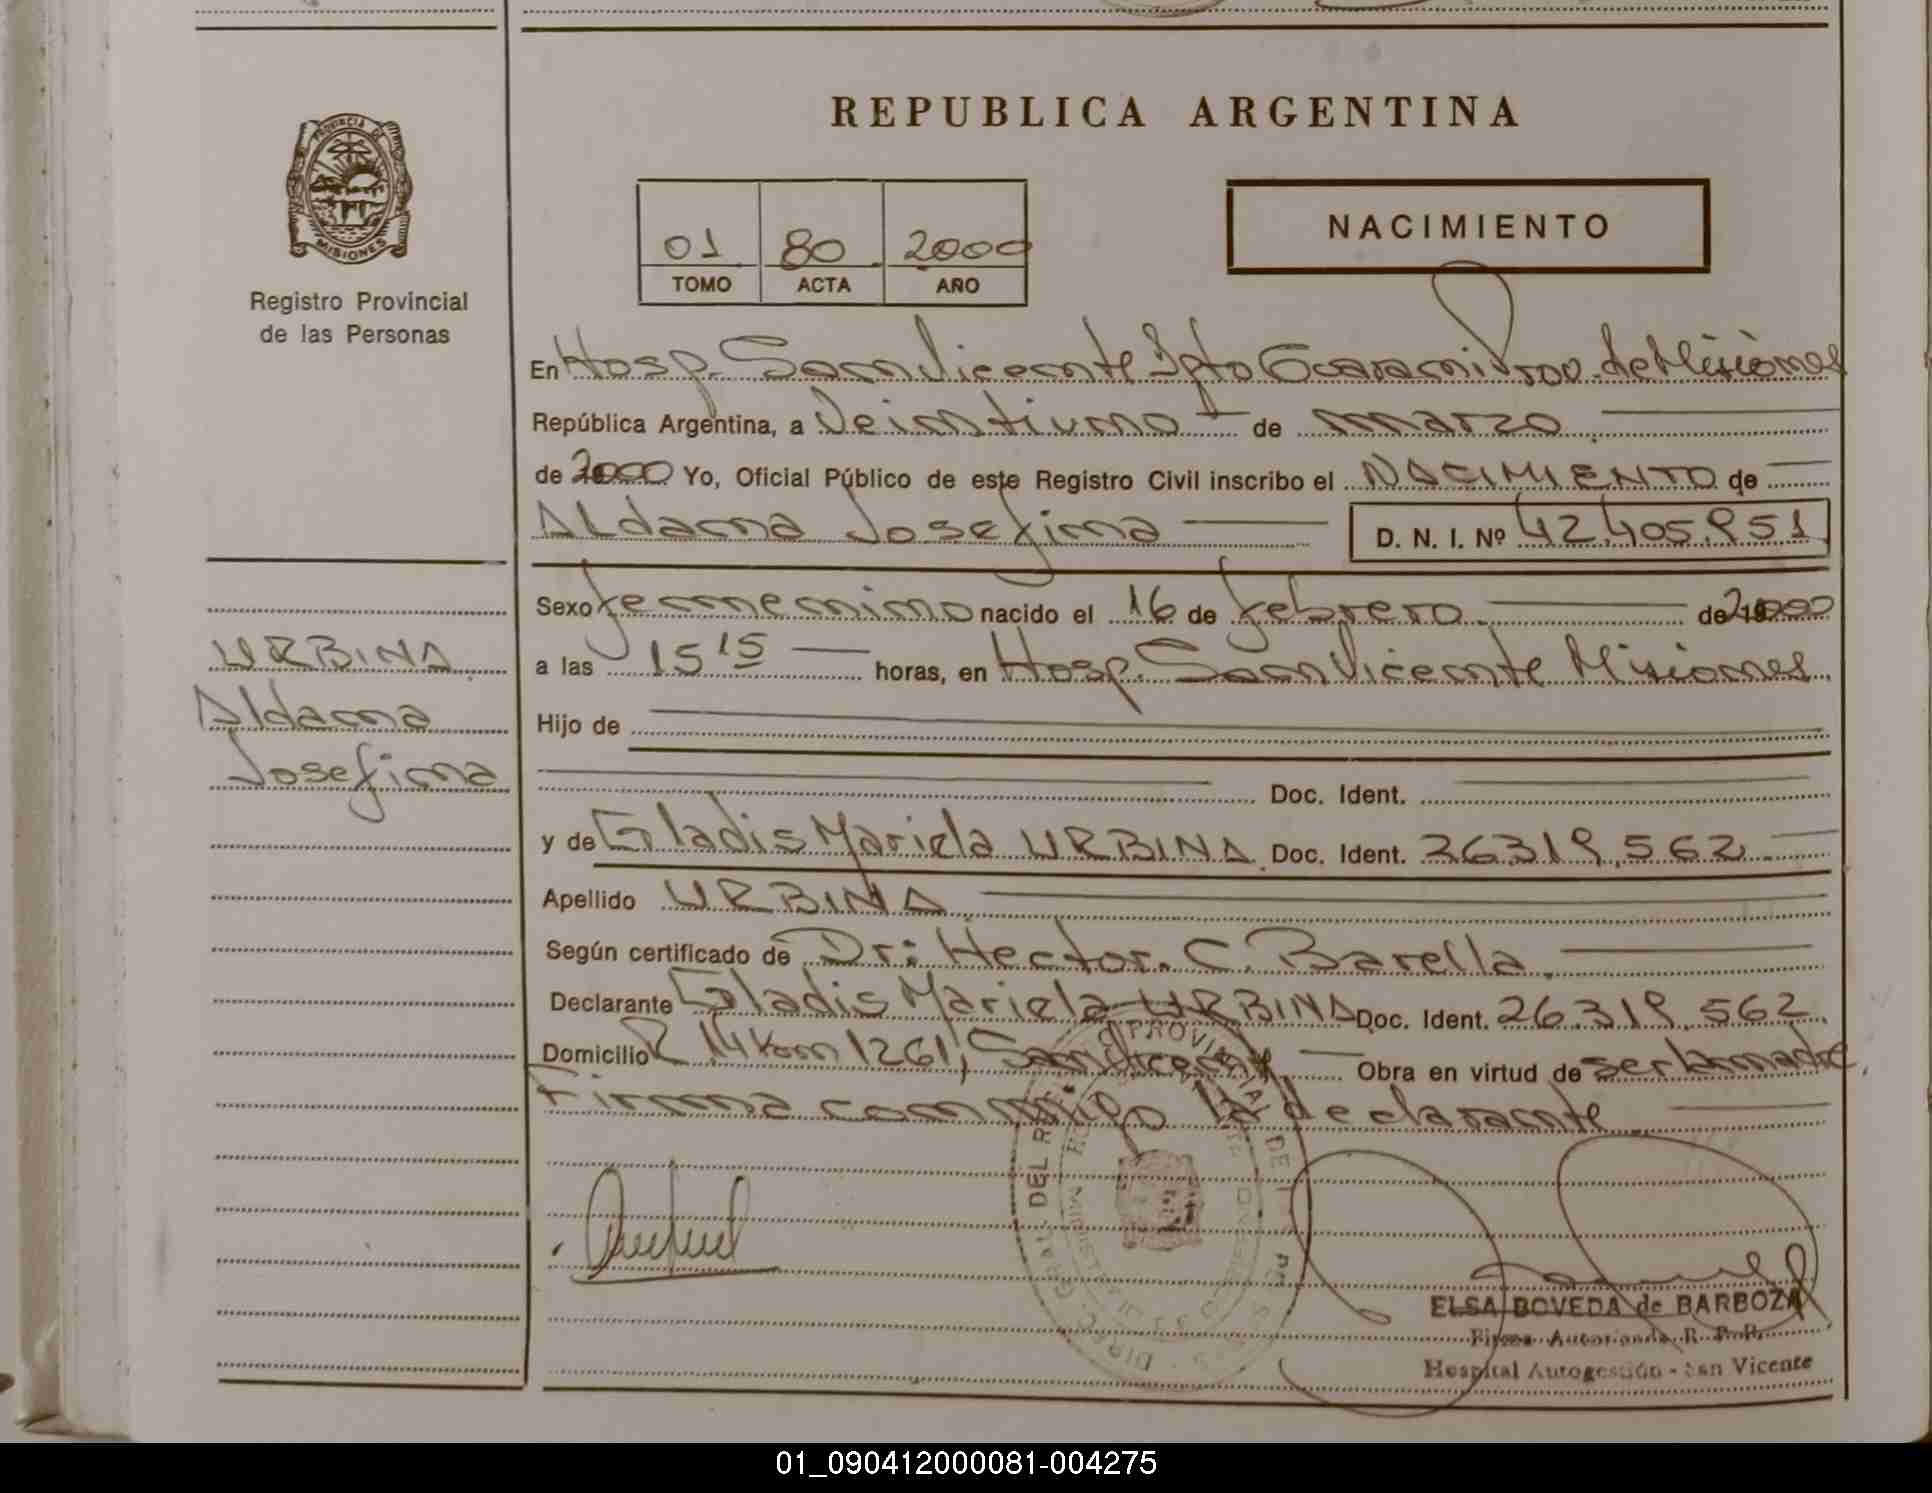 REPUBLICA ARGENTINA
PROVINCIA DE
MISIONES
Registro Provincial
de las Personas
01 80 2000
TOMO ACTA AÑO
NACIMIENTO
En Hosp. San Vicente Dpto Guarani Prov. de Misiones
República Argentina, a Veintiuno de marzo
de 2000 Yo, Oficial Público de este Registro Civil inscribo el NACIMIENTO de
Aldana Josefina D. N. I. Nº 42.405.951
Sexo femenino nacido el 16 de febrero de 2000
a las 15 15 horas, en Hosp. San Vicente Misiones.
Hijo de
Doc. Ident.
y de Gladis Mariela URBINA Doc. Ident. 26.319.562
Apellido URBINA
Según certificado de Dr: Hector. C. Barella.
Declarante Gladis Mariela URBINA Doc. Ident. 26.319.562
Domicilio R 14 Km 1261, San Vicente Obra en virtud de ser la madre.
Firma conmigo la declarante
URBINA
Aldana
Josefina
ELSA BOVEDA de BARBOZA
Firma Autorizada R. P. P.
Hospital Autogestión - San Vicente
01_090412000081-004275